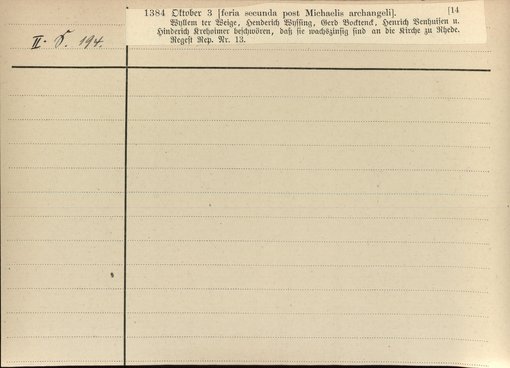 1384 Oktober 3 [feria secunda post Michaelis archangeli]. [14
Wyllem ter Weige, Henderich Wyssing, Gerd Boktend, Henrich Venhuisen u.
Hinderich Krehoimer beschwören, daß sie wachszinsig sind an die Kirche zu Rhede.
Regest Rep. Nr. 13.
II. 194.